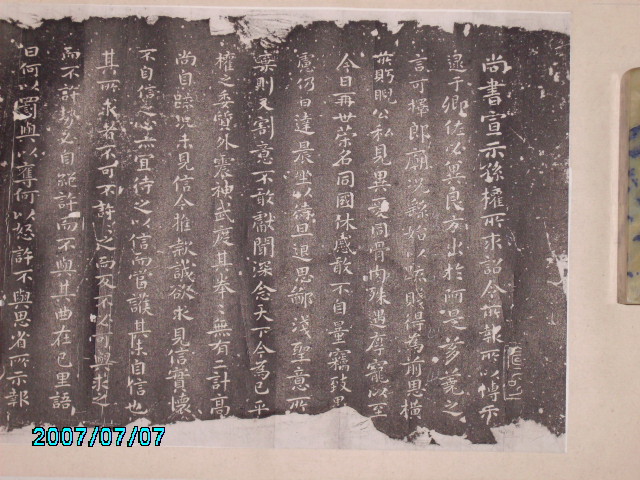 尚書宣示孫權所求詔令所報所以博示
逮于卿佐必冀良方出於阿是芻蕘之
言可擇郎廟況繇始以疏賤得為前恩橫
所䀹睨公私見異愛同骨肉殊遇厚寵以至
今日再世榮名同國休慼敢不自量竊致愚
慮仍日達晨坐以待旦退思鄙淺聖意所
棄則又割意不敢獻聞深念天下今為已平
權之委質外震神武度其拳〻無有二計高
尚自疏況未見信今推款誠欲求見信實懷
不自信之心亦宜待之以信而當護其未自信也
其所求者不可不許之而反不必可與求之
而不許勢必自絕許而不與其曲在己里語
曰何以罰與以奪何以怒許不與思省所示報
2007/07/07